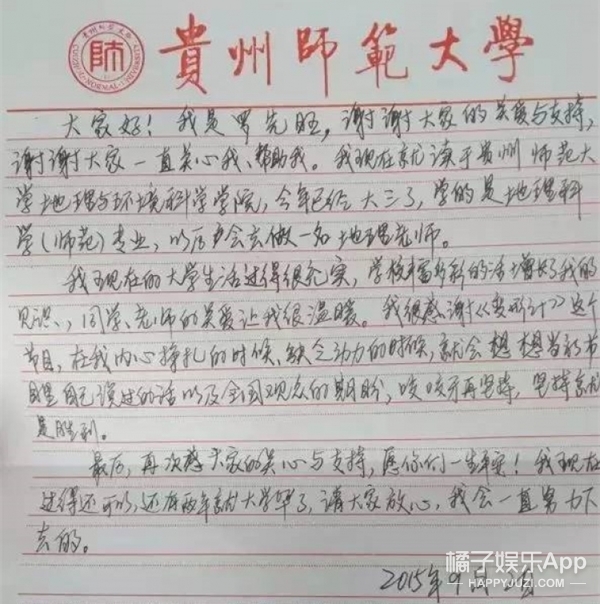 貴州師範大學
貴州師範大學
師
GUIZHOU NORMAL UNIVERSITY
大家好！我是罗先旺，谢谢大家的关爱与支持，
谢谢大家一直关心我、帮助我。我现在就读于贵州师范大
学地理与环境科学学院，今年已经大三了，学的是地理科
学（师范）专业，以后会去做一名地理老师。
我现在的大学生活过得很充实，学校丰富多彩的活增好我的
见识、，同学、老师的关爱让我很温暖。我很感谢《变形计》这个
节目，在我内心挣扎的时候、缺乏动力的时候，就会想想当初节
目里自己说过的话以及全国观众的期盼，咬咬牙再坚持，坚持就
是胜利。
最后，再次感大家的关心与支持，愿你们一生平安！我现在
过得还可以，还有两年就大学毕了，请大家放心，我会一直努力下
去的。
2015年9月
橘子娱乐App
HAPPYJUZI.COM